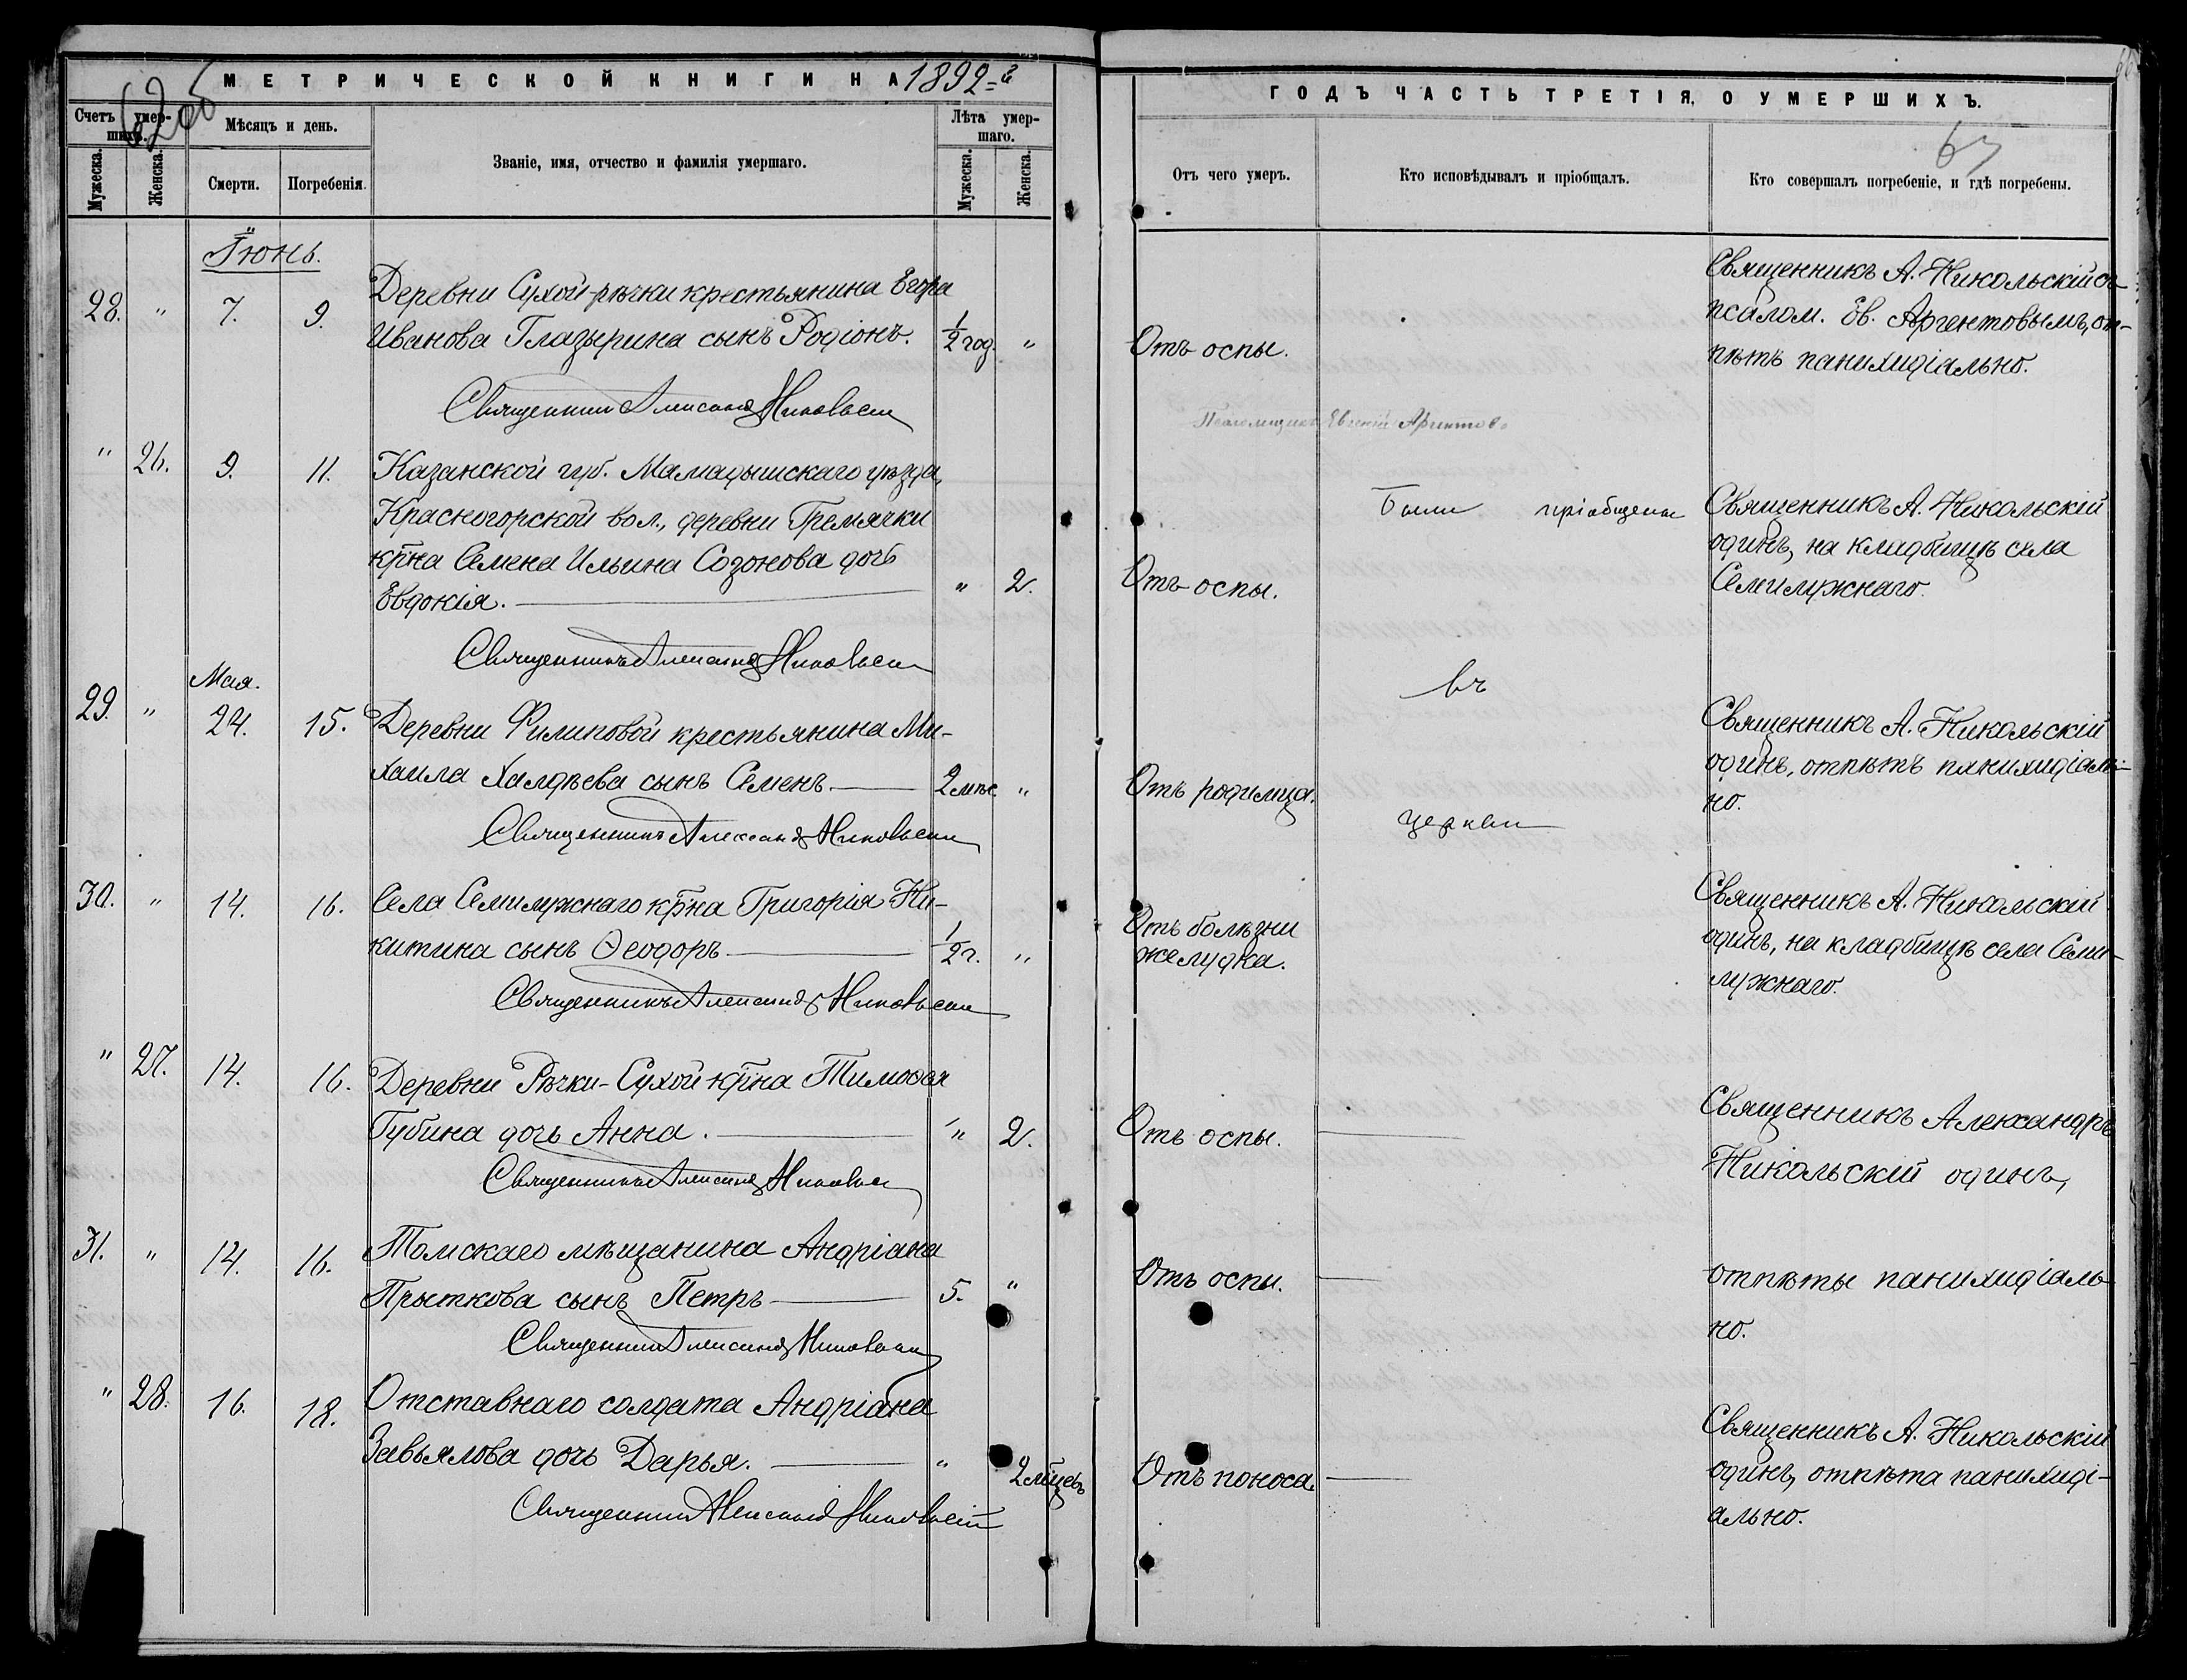 МЕТРИЧЕСКОЙ КНИГИ НА 1892-й
62об
Счетъ умер-
шихъ.
Мѣсяцъ и день.
Званіе, имя, отчество и фамилія умершаго.
Лѣта умер-
шаго.
Мужеска.
Женска.
Смерти.
Погребенія.
Мужеска.
Женска.
Іюнь.
28. " 7. 9. Деревни Сухой-рѣчки крестьянина Егора
Иванова Глазырина сынъ Родіонъ. 1/2 год. "
Священникъ Александръ Никольскій
" 26. 9. 11. Казанской губ. Мамадышскаго уѣзда,
Красногорской вол., деревни Гремячки
кр̅на Семена Ильина Созонова дочь
Евдокія. " 2.
Священникъ Александръ Никольскій
Мая.
29. " 24. 15. Деревни Филиповой крестьянина Ми-
хаила Халдѣева сынъ Семенъ. 2 мѣс "
Священникъ Александръ Никольскій
30. " 14. 16. Села Семилужнаго кр̅на Григорія Ни-
китина сынъ Ѳеодоръ 1/2 г. "
Священникъ Александръ Никольскій
" 27. 14. 16. Деревни Рѣчки-Сухой кр̅на Тимоѳея
Губина дочь Анна. " 2.
Священникъ Александръ Никольскій
31. " 14. 16. Томскаго мѣщанина Андріана
Прыткова сынъ Петръ 5. "
Священникъ Александръ Никольскій
" 28. 16. 18. Отставнаго солдата Андріана
Завьялова дочь Дарья. " 2 мѣсцевъ
Священникъ Александръ Никольскій
ГОДЪ ЧАСТЬ ТРЕТІЯ, О УМЕРШИХЪ.
63
Отъ чего умеръ.
Кто исповѣдывалъ и пріобщалъ.
Кто совершалъ погребеніе, и гдѣ погребены.
Священникъ А. Никольскій съ
псалом. Ев. Аргентовымъ, от-
Отъ оспы.
пѣтъ панихидіально.
Псаломщикъ Евгеній Аргентовъ
Были пріобщены
Священникъ А. Никольскій
одинъ, на кладбищѣ села
Отъ оспы.
Семилужнаго.
въ
Священникъ А. Никольскій
одинъ, отпѣтъ панихидіаль-
Отъ родимца.
но.
церкви
Священникъ А. Никольскій
Отъ болѣзни
одинъ, на кладбищѣ села Семи-
желудка.
лужнаго.
Священникъ Александръ
Отъ оспы.
Никольскій одинъ,
Отъ оспы.
отпѣты панихидіаль-
но.
Священникъ А. Никольскій
Отъ поноса.
одинъ, отпѣта панихиді-
ально.